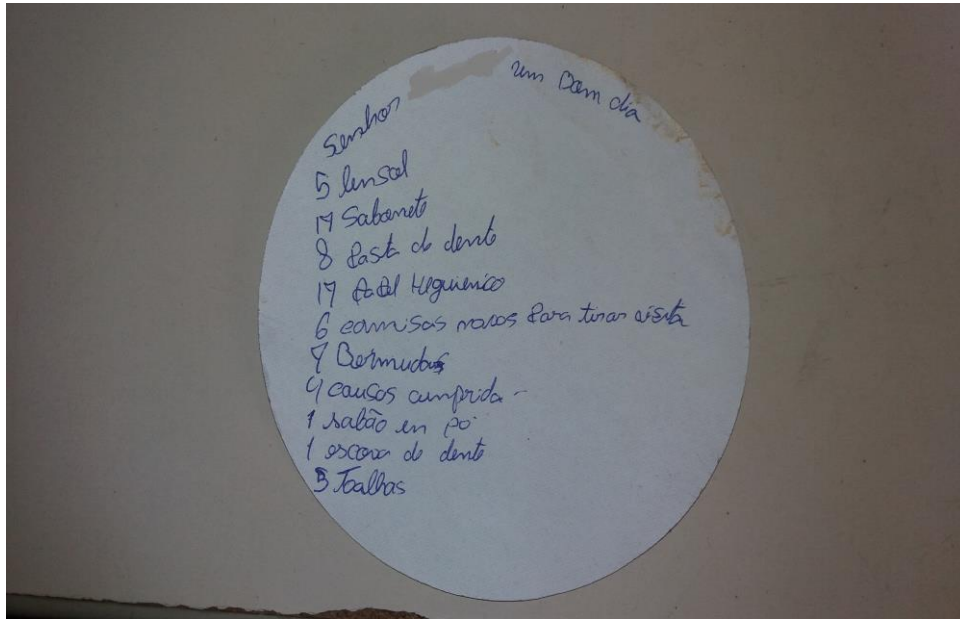 Senhor um Bom dia
5 lensol
17 Sabonete
8 Pasta de dente
17 Papel Higuienico
6 camisas novas Para tirar visita
7 Bermudas
4 causas cumprida -
1 sabão en pó
1 escova de dente
3 Toalhas